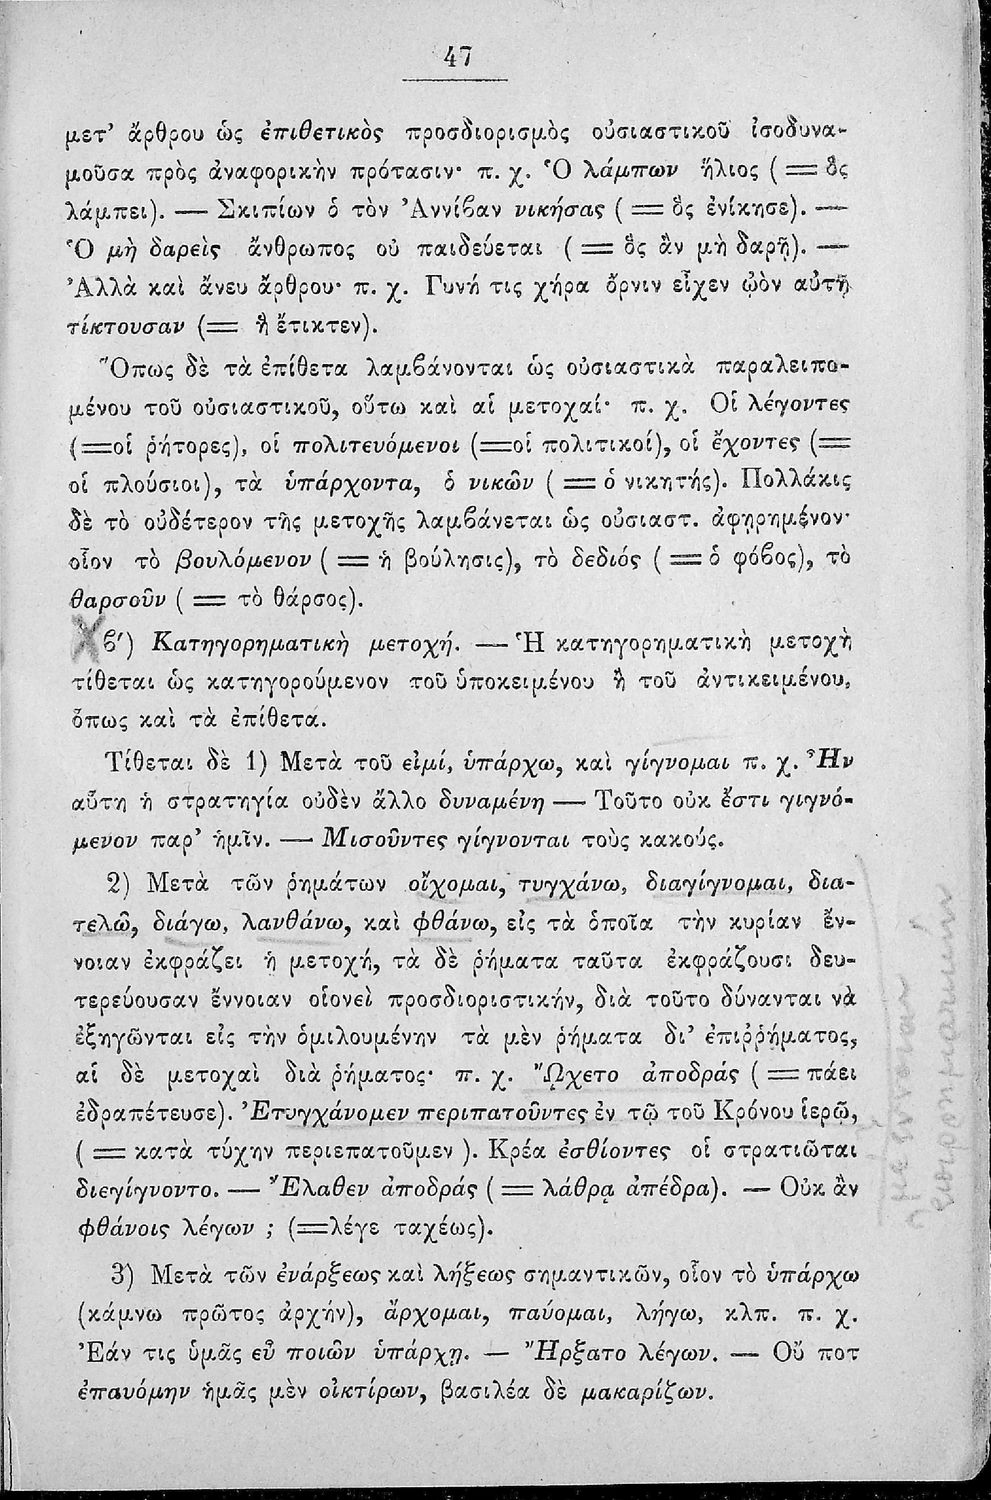 47
μετ’ ἄρθρου ὡς ἐπιθετικὸς προσδιορισμὸς οὐσιαστικοῦ ἰσοδυνα-
μοῦσα πρὸς ἀναφορικὴν πρότασιν· π. χ. Ὁ λάμπων ἥλιος ( = ὃς
λάμπει). — Σκιπίων ὁ τὸν Ἀννίβαν νικήσας ( = ὃς ἐνίκησε). —
Ὁ μὴ δαρεὶς ἄνθρωπος οὐ παιδεύεται ( = ὃς ἂν μὴ δαρῇ). —
Ἀλλὰ καὶ ἄνευ ἄρθρου· π. χ. Γυνή τις χήρα ὄρνιν εἶχεν ᾠὸν αὐτῇ
τίκτουσαν (= ἣ ἔτικτεν).
Ὅπως δὲ τὰ ἐπίθετα λαμβάνονται ὡς οὐσιαστικὰ παραλειπο-
μένου τοῦ οὐσιαστικοῦ, οὕτω καὶ αἱ μετοχαί· π. χ. Οἱ λέγοντες
(=οἱ ῥήτορες), οἱ πολιτευόμενοι (=οἱ πολιτικοί), οἱ ἔχοντες (=
οἱ πλούσιοι), τὰ ὑπάρχοντα, ὁ νικῶν ( = ὁ νικητής). Πολλάκις
δὲ τὸ οὐδέτερον τῆς μετοχῆς λαμβάνεται ὡς οὐσιαστ. ἀφῃρημένον·
οἷον τὸ βουλόμενον ( = ἡ βούλησις), τὸ δεδιός ( = ὁ φόβος), τὸ
θαρσοῦν ( = τὸ θάρσος).
β′) Κατηγορηματικὴ μετοχή. — Ἡ κατηγορηματικὴ μετοχὴ
τίθεται ὡς κατηγορούμενον τοῦ ὑποκειμένου ἢ τοῦ ἀντικειμένου,
ὅπως καὶ τὰ ἐπίθετα.
Τίθεται δὲ 1) Μετὰ τοῦ εἰμί, ὑπάρχω, καὶ γίγνομαι π. χ. Ἦν
αὕτη ἡ στρατηγία οὐδὲν ἄλλο δυναμένη — Τοῦτο οὐκ ἔστι γιγνό-
μενον παρ’ ἡμῖν. — Μισοῦντες γίγνονται τοὺς κακούς.
2) Μετὰ τῶν ῥημάτων οἴχομαι, τυγχάνω, διαγίγνομαι, δια-
τελῶ, διάγω, λανθάνω, καὶ φθάνω, εἰς τὰ ὁποῖα τὴν κυρίαν ἔν-
νοιαν ἐκφράζει ἡ μετοχή, τὰ δὲ ῥήματα ταῦτα ἐκφράζουσι δευ-
τερεύουσαν ἔννοιαν οἱονεὶ προσδιοριστικήν, διὰ τοῦτο δύνανται νὰ
ἐξηγῶνται εἰς τὴν ὁμιλουμένην τὰ μὲν ῥήματα δι’ ἐπιῤῥήματος,
αἱ δὲ μετοχαὶ διὰ ῥήματος· π. χ. ᾬχετο ἀποδράς ( = πάει
ἐδραπέτευσε). Ἐτυγχάνομεν περιπατοῦντες ἐν τῷ τοῦ Κρόνου ἱερῷ,
( = κατὰ τύχην περιεπατοῦμεν ). Κρέα ἐσθίοντες οἱ στρατιῶται
διεγίγνοντο. — Ἔλαθεν ἀποδράς ( = λάθρᾳ ἀπέδρα). — Οὐκ ἂν
φθάνοις λέγων ; (=λέγε ταχέως).
3) Μετὰ τῶν ἐνάρξεως καὶ λήξεως σημαντικῶν, οἷον τὸ ὑπάρχω
(κάμνω πρῶτος ἀρχήν), ἄρχομαι, παύομαι, λήγω, κλπ. π. χ.
Ἐάν τις ὑμᾶς εὖ ποιῶν ὑπάρχῃ. — Ἤρξατο λέγων. — Οὔ ποτ
ἐπαυόμην ἡμᾶς μὲν οἰκτίρων, βασιλέα δὲ μακαρίζων.